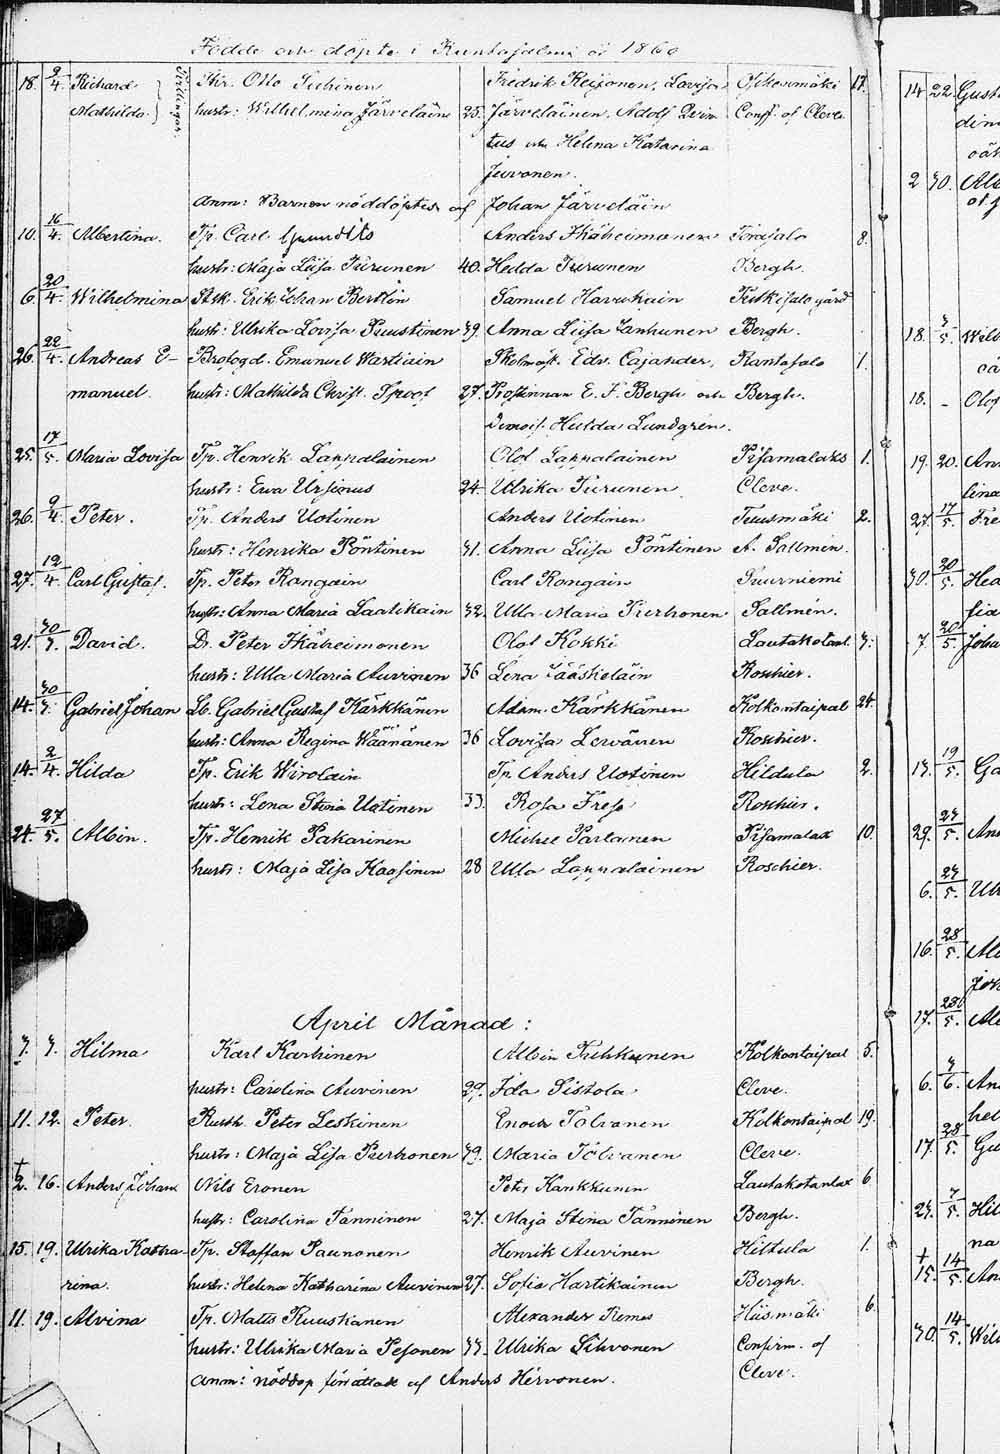 Födde och döpte i Rantasalmi år 1860
18. 9/4. Richard Thr. Otto Tiihonen Fredrik Reijonen, Lovisa 17.
Mathilda } Tvillingar hustr: Wilhelmina Järveläin 25. Järveläinen, Adolf Conff. of Cleve
och Helena Katarina
Juvonen.
Anm: Barnen nöddöptes af Johan Järveläin
10. 16/4. Albertina. Tp. Carl Anders Ikäheimonen Torasalo 8.
hustr: Maja Liisa Turunen 40. Hedda Turunen Bergh.
6. 20/4. Wilhelmina Erik Johan Bertlin Samuel Havukain Putkisalo gård
hustr: Ulrika Lovisa Puustinen 39. Anna Liisa Vanhunen Bergh.
26. 22/4. Andreas E- Emanuel Wartiain Edv. Cajander, Rantasalo 1.
manuel. hustr: Mathilda Christ. Sproof 27. Prostinnan E. F. Bergh och Bergh.
Demois. Hulda Lundgrén.
25. 17/5. Maria Lovisa Tp. Henrik Lappalainen Olof Lappalainen Pisamalaks 1.
hustr: Ewa Ursinus 24. Ulrika Turunen Cleve.
26. 9/4. Peter. Tp. Anders Uotinen Anders Uotinen Tuusmäki 2.
hustr: Henrika Pöntinen 31. Anna Liisa Pöntinen A. Sallmén.
27. 12/4. Carl Gustaf. Tp. Peter Rongain Carl Rongain Suurniemi
hustr: Anna Maria Laatikain 32. Ulla Maria Turhonen Sallmén.
21. 30/3. David. D. Peter Ikäheimonen Olof Kokki Lautakotant. 3.
hustr: Ulla Maria Auvinen 36 Lena Jääskeläin Roschier.
14. 30/3. Gabriel Johan Lb. Gabriel Gustaf Kärkkänen Adam Kärkkänen Kolkontaipal 24.
hustr: Anna Regina Wäänänen 36 Lovisa Levänen Roschier.
14. 2/4. Hilda Tp. Erik Wirolain Tp. Anders Uotinen Hiltula 2.
hustr: Lena Stina Uotinen 33 Rosa Fress Roschier.
24. 27/5. Albin. Tp. Henrik Pakarinen Michel Partanen Pisamalax 10.
hustr: Maja Lisa Kaasinen 28 Ulla Lappalainen Roschier.
April Månad:
3. 7. Hilma Karl Karhinen Albin Kolkontaipal 5.
hustr: Carolina Auvinen 29. Ida Sistola Cleve.
11. 12. Peter Rusth. Peter Leskinen Enock Tolvanen Kolkontaipal 19.
hustr: Maja Lisa Turhonen 39. Maria Tolvanen Cleve.
† 2. 16. Anders Johan Nils Eronen Peter Kankkunen Lautakotanlax 6
hustr: Carolina Tanninen 27. Maja Stina Tanninen Bergh.
15. 19. Ulrika Katha- Tp. Staffan Paunonen Henrik Auvinen Hiltula 1.
rina. hustr: Helena Katharina Auvinen 27. Sofia Hartikainen Bergh.
11. 19. Alvina Tp. Matts Ruuskanen Alexander Remes Hiismäki 6.
hustr: Ulrika Maria Pesonen 33. Ulrika Sihvonen Confirm. of
Anm: nöddop förrättadt af Anders Hirvonen. Cleve.
14 22. Gust
2 30. Al
18. 3/5. Wil
18. - Olof
19. 20. An
lina
27. 17/5. Fre
30. 20/5. Hed
fia
7. 20/5. Joha
13. 19/5. Ga
29. 27/5. An
6. 27/5. Ul
16. 28/5. Al
Joh
17. 28/5. Al
6. 3/6. An
hel
17. 28/5. Gu
23. 7/5. Hil
na
† 15. 14/5. An
30. 14/5. Wil